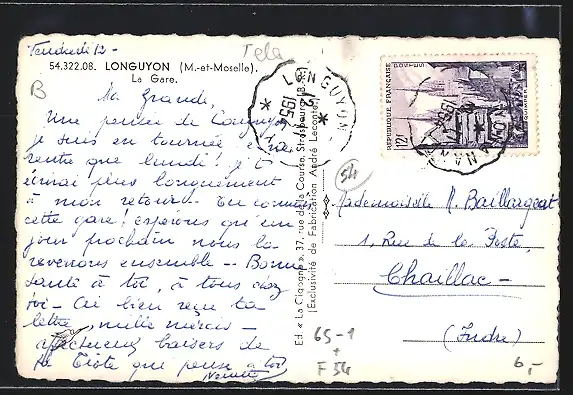 Vendredi 12 -
54.322.08. LONGUYON (M.-et-Moselle).
La Gare.
Tela
B
Ma Grande,
Une pensée de Longuyon
je suis en tournée et ne
rentre que lundi! je t'
écrirai plus longuement
à mon retour - Tu connais
cette gare! espérons qu'un
jour prochain nous la
reverrons ensemble - Bonne
santé à toi, à tous chez
toi - Ai bien reçu ta
lettre, mille mercis -
affectueux baisers de
ta Tiote qui pense à toi
Ed. « La Cigogne », 37, rue de la Course, Strasbourg
(Exclusivité de Fabrication André Leconte)
LONGUYON
195
REPUBLIQUE FRANÇAISE
POSTES
12f
QUIMPER
54
Mademoiselle M. Baillargeat
1, Rue de la Poste,
Chaillac -
(Indre)
65-1
+
F 54
6,-